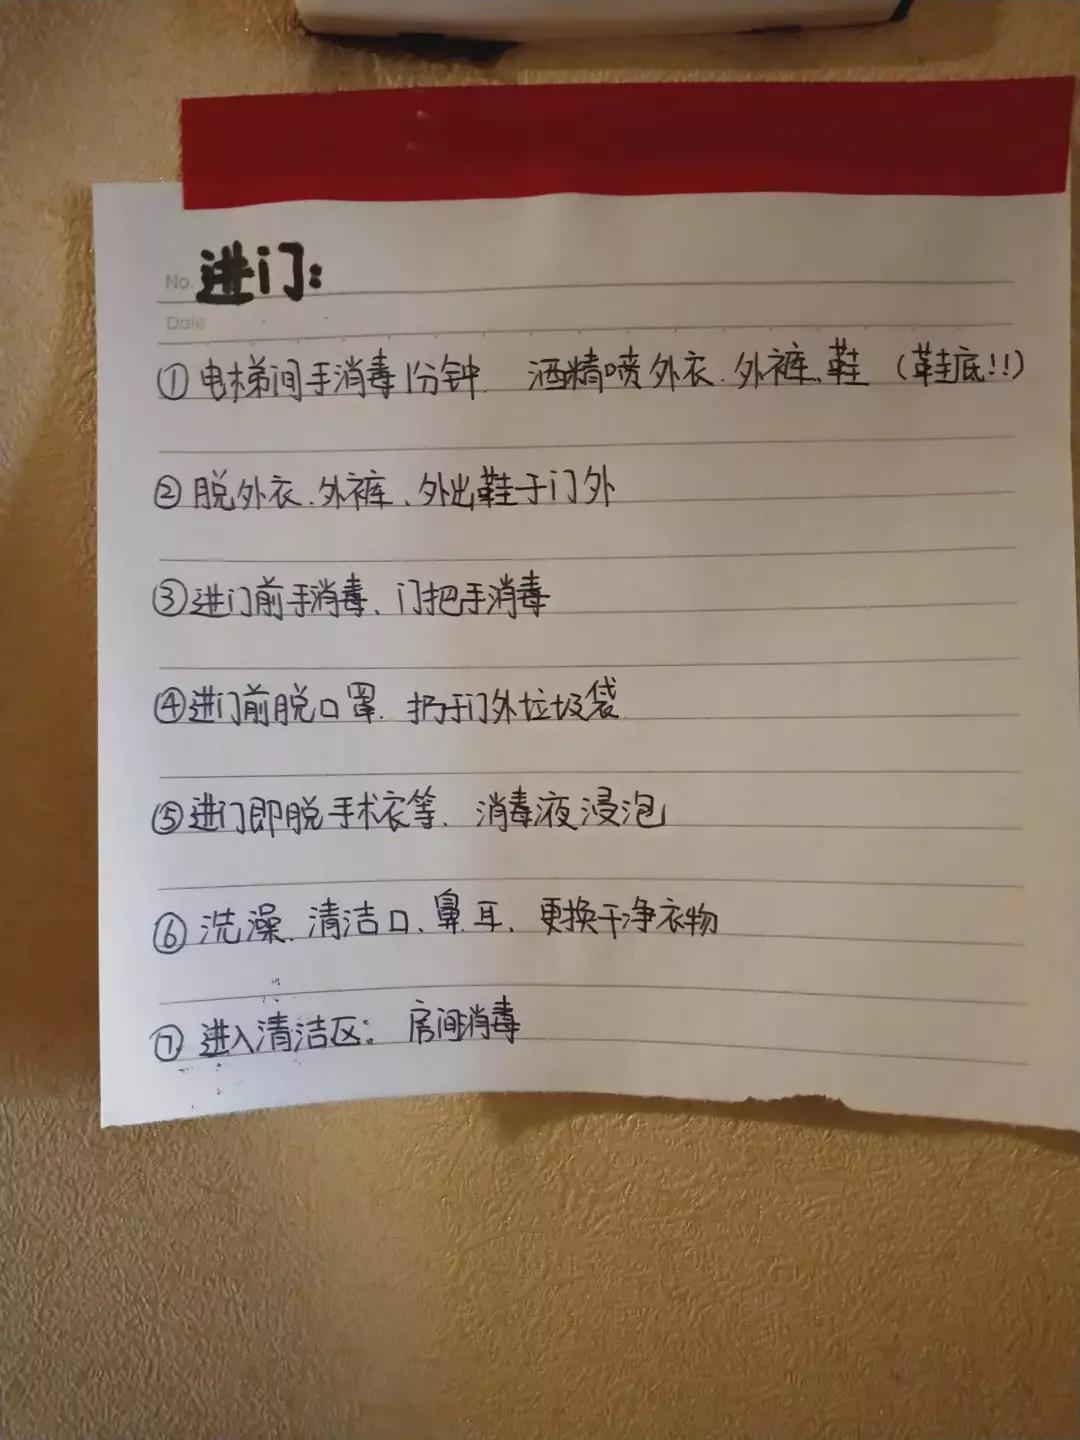 No.
进门：
Date
①电梯间手消毒1分钟. 酒精喷外衣.外裤.鞋（鞋底!!）
②脱外衣.外裤、外出鞋于门外
③进门前手消毒、门把手消毒
④进门前脱口罩.扔于门外垃圾袋
⑤进门即脱手术衣等.消毒液浸泡
⑥洗澡.清洁口、鼻.耳、更换干净衣物
⑦进入清洁区：房间消毒